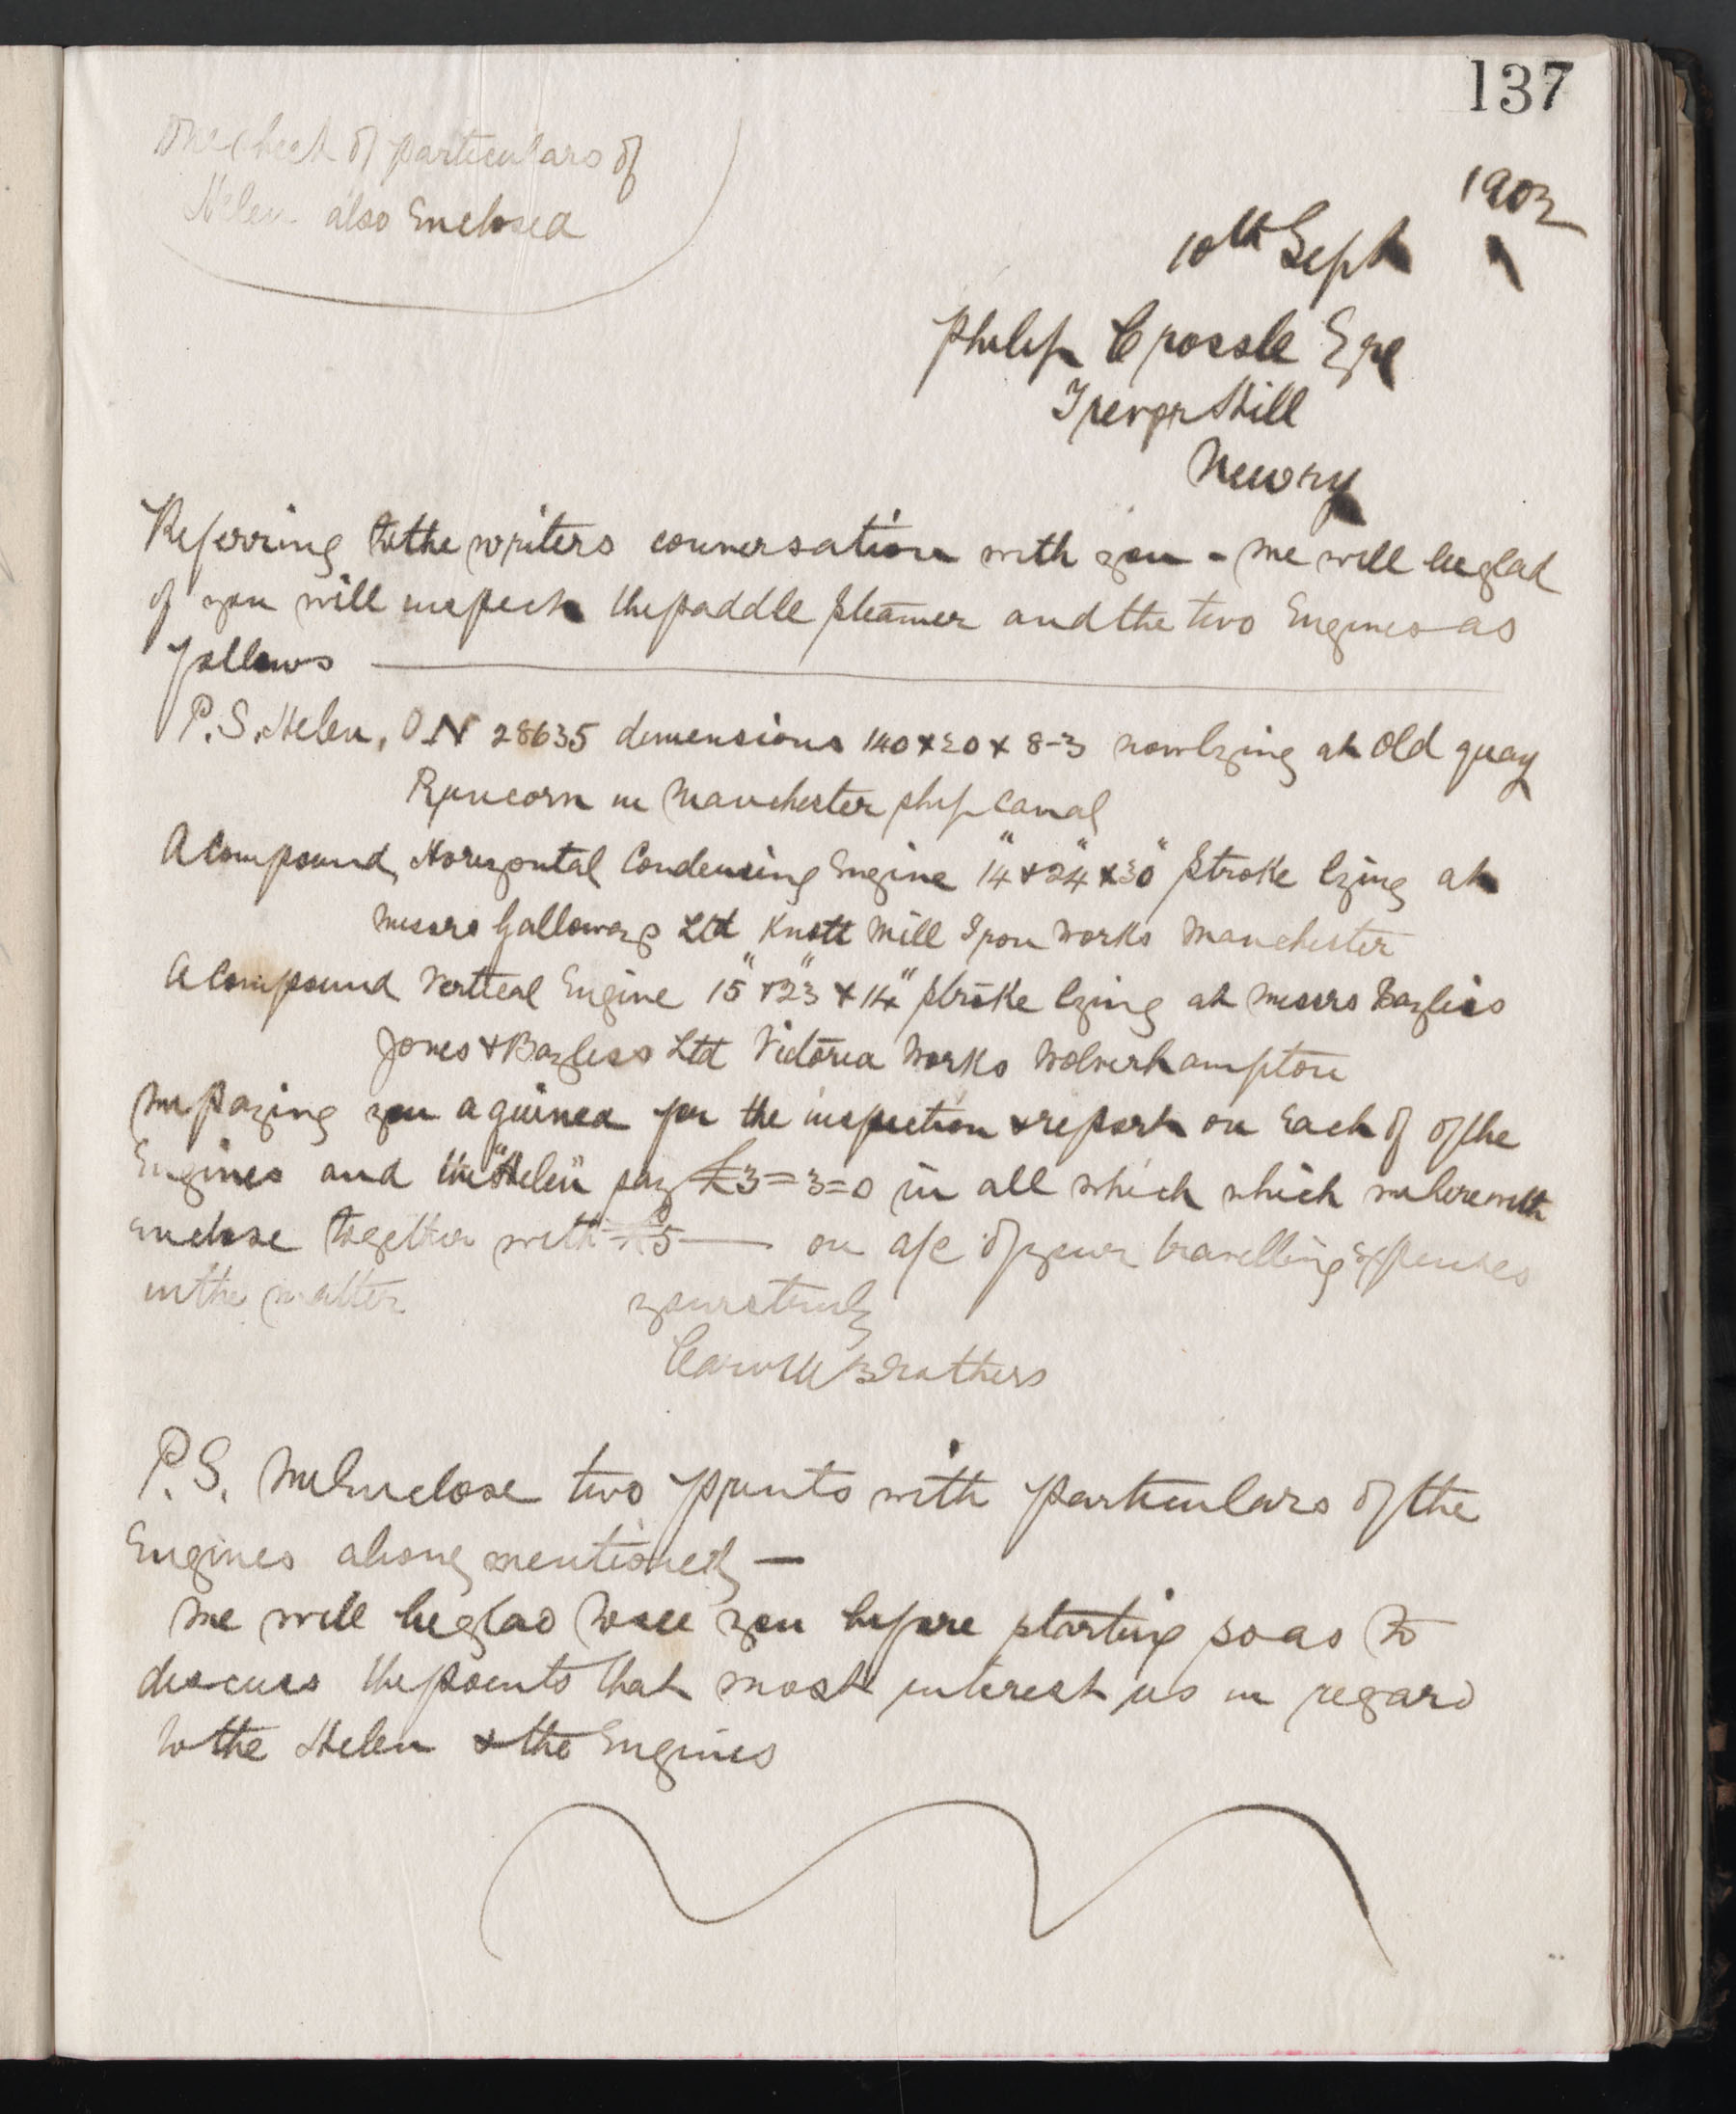 137
One sheet of particulars of
Helen also Enclosed
1902
10th Sept
Philip Crossle Eqre
Trevor Hill
Newry
Referring to the writers conversation with you - we will be glad
if you will inspect the paddle steamer and the two Engines as
follows
P.S. Helen, O.N 28635 dimensions 140 x 20 x 8-3 now lying at Old quay
Runcorn in Manchester ship Canal
A Compound, Horizontal Condensing Engine 14" x 24" x 30" stroke lying at
Messrs Galloways Ltd Knott Mill Iron Works Manchester
A Compound Vertical Engine 15" x 23" x 14" stroke lying at Messrs Bayliss
Jones & Bayliss Ltd Victoria Works Wolverhampton
We paying you a guinea for the inspection & report on Each of of the
Engines and the "Helen" say £3=3=0 in all which which we herewith
enclose together with £5 — on a/c of your travelling Expenses
in the matter
yours truly
Carvill Brothers
P.S. We Enclose two prints with particulars of the
Engines above mentioned —
We will be glad to see you before starting so as to
discuss the points that most interest us in regard
to the Helen & the Engines